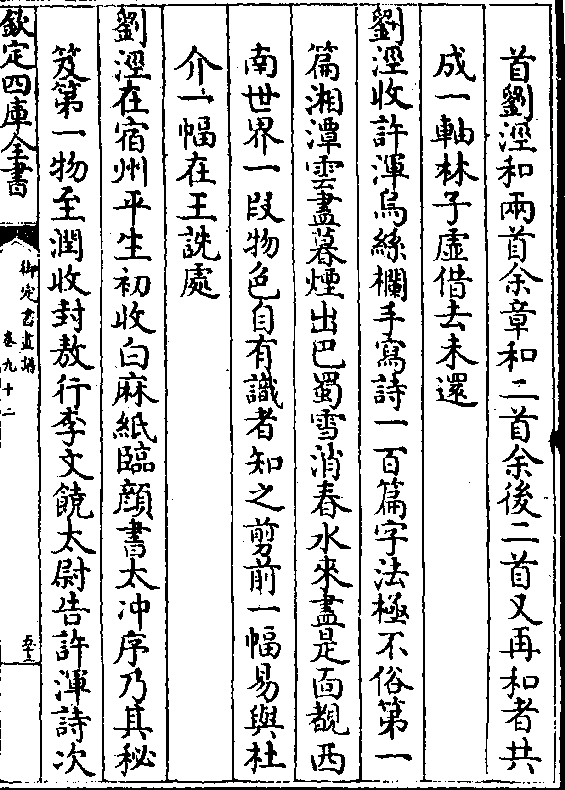 首劉涇和兩首余章和二首余後二首又再和者共
成一軸林子虛借去未還
劉涇收許渾烏絲欄手寫詩一百篇字法極不俗第一
篇湘潭雲盡暮煙出巴蜀雪消春水來盡是面覩西
南世界一段物色自有識者知之剪前一幅易與杜
介一幅在王詵處
劉涇在宿州平生初收白麻紙臨顔書太冲序乃其秘
笈第一物至潤收封敖行李文饒太尉告許渾詩次
欽定四庫全書
御定書畫譜
卷九十二